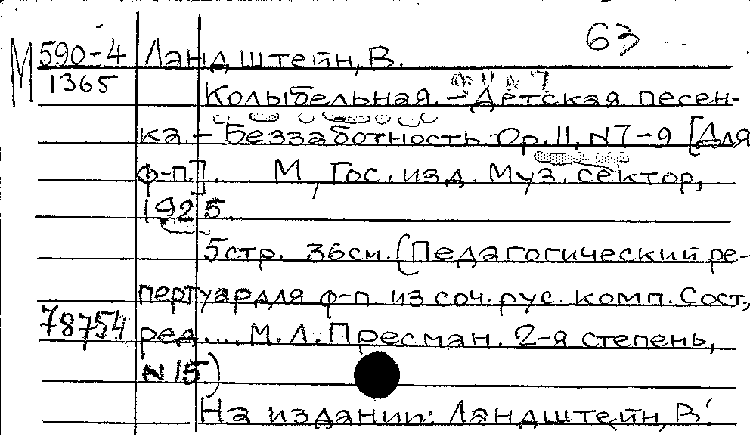 63
М 590-4 Ландштейн, В.
1365
Колыбельная. - Детская песен-
ка - Беззаботность Ор. 11, N7-9 [Для
ф-п.]. М., Гос. изд. Муз. сектор,
1925
5 стр. 36 см. (Педагогический ре-
пертуар для ф-п. из соч. рус. комп. Сост.,
78754 ред.... М.Л. Пресман. 2-я степень,
N 15)
На издании: Ландштейн, В.